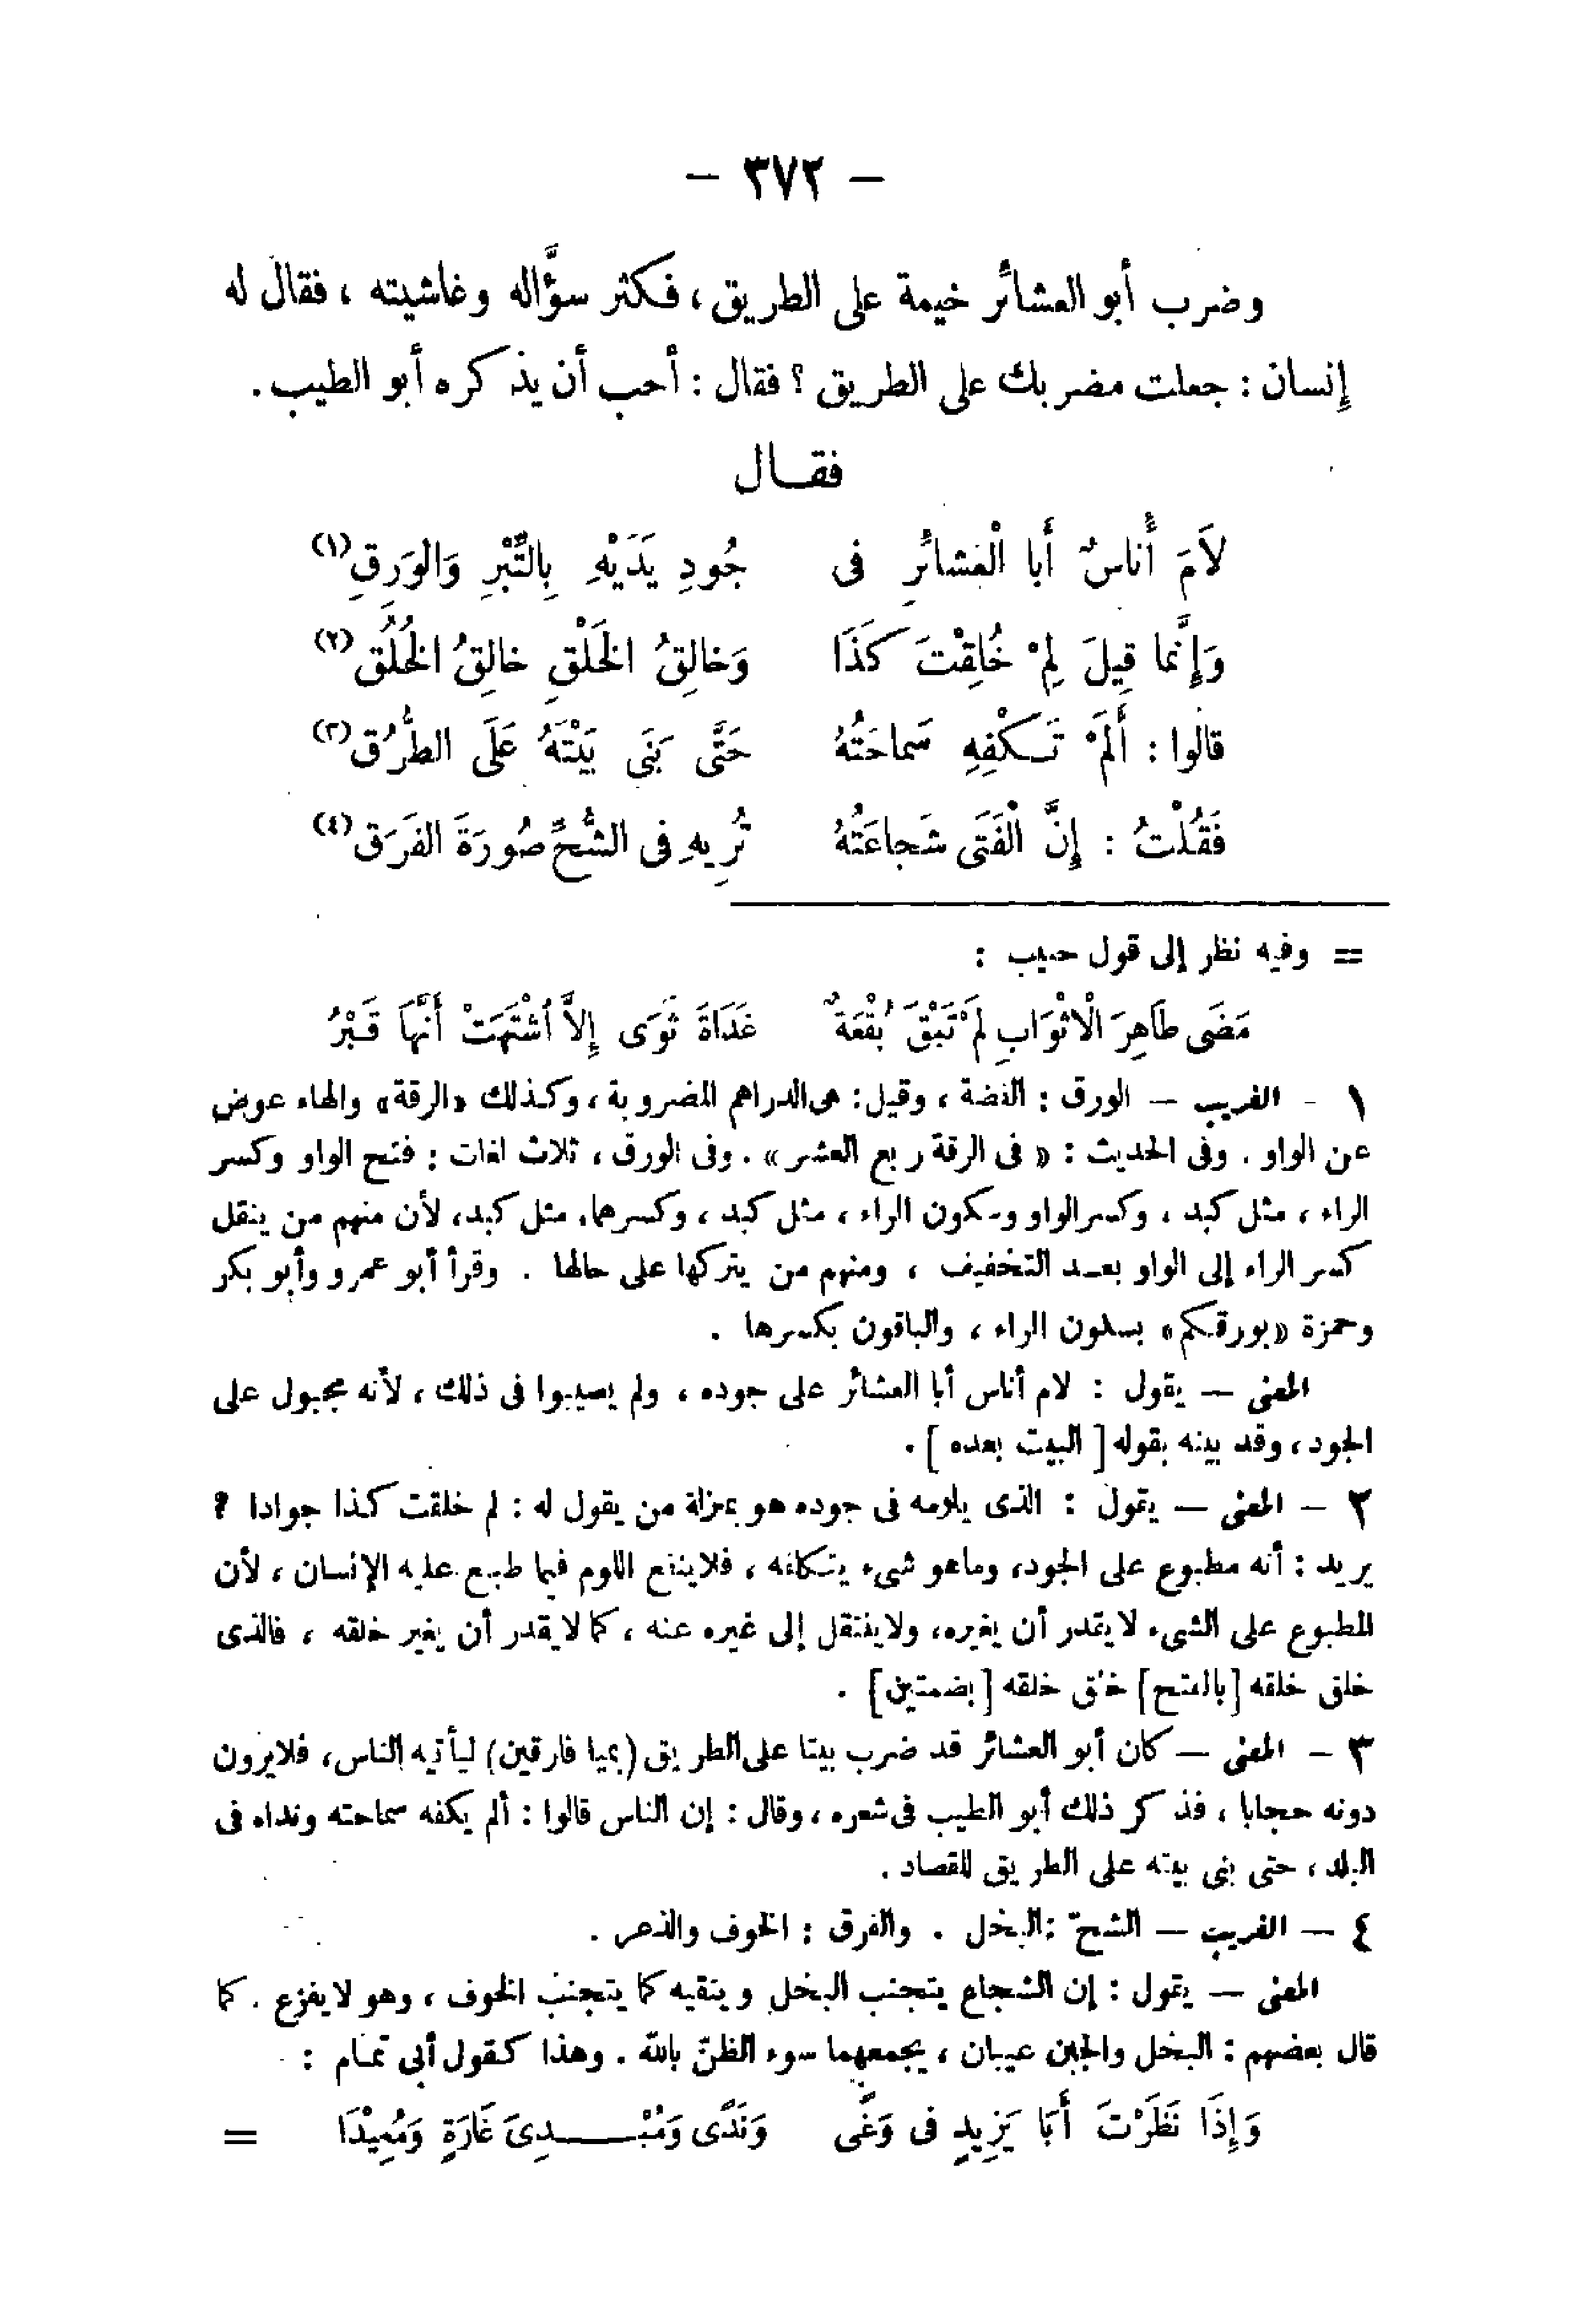 - ٣٧٢ -
وضرب أبو العشائر خيمة على الطريق ، فكثر سؤَّاله وغاشيته ، فقال له
إنسان : جعلت مضربك على الطريق ؟ فقال : أحب أن يذكره أبو الطيب .
فقال
لاَمَ أُناسٌ أَبا الْعَشائرِ فى جُودِ يَدَيْهِ بِالتِّبْرِ وَالْوَرِقِ (١)
وَإِنَّما قِيلَ لِمْ خُلِقْتَ كَذَا وَخالِقُ الخَلْقِ خالِقُ الخُلُق (٢)
قالُوا : أَلَمْ تَكْفِهِ سَماحَتُهُ حَتَّى بَنَى بَيْتَهُ عَلَى الطُّرُق (٣)
فَقُلْتُ : إِنَّ الْفَتَى شَجاعَتُهُ تُرِيهِ فى الشُّحِّ صُورَةَ الفَرَق (٤)
= وفيه نظر إلى قول حبيب :
مَضَى طَاهِرَ الْأَثْوَابِ لَمْ تَبْقَ بُقْعَةٌ غَدَاةَ ثَوَى إِلاَّ اُشْتَهَتْ أَنَّهَا قَبْرُ
١ - الغريب - الورق : الفضة ، وقيل : هى الدراهم المضروبة ، وكذلك «الرقة» والهاء عوض
عن الواو . وفى الحديث : « فى الرقة ربع العشر » . وفى الورق ، ثلاث لغات : فتح الواو وكسر
الراء ، مثل كبد ، وكسر الواو وسكون الراء ، مثل كبد ، وكسرهما، مثل كبد، لأن منهم من ينقل
كسر الراء إلى الواو بعد التخفيف ، ومنهم من يتركها على حالها . وقرأ أبو عمرو وأبو بكر
وحمزة «بورقكم» بسكون الراء ، والباقون بكسرها .
المعنى - يقول : لام أناس أبا العشائر على جوده ، ولم يصيبوا فى ذلك ، لأنه مجبول على
الجود ، وقد بينه بقوله [ البيت بعده ] .
٢ - المعنى - يقول : الذى يلومه فى جوده هو بمنزلة من يقول له : لم خلقت كذا جوادا ؟
يريد : أنه مطبوع على الجود، وماهو شىء يتكلفه ، فلاينفع اللوم فيما طبع عليه الإنسان ، لأن
المطبوع على الشىء لايقدر أن يغيره، ولاينتقل إلى غيره عنه ، كما لايقدر أن يغير خلقه ، فالذى
خلق خلقه [بالفتح] خلق خلقه [بضمتين] .
٣ - المعنى - كان أبو العشائر قد ضرب بيتا على الطريق (بميا فارقين) ليأتيه الناس، فلايرون
دونه حجابا ، فذكر ذلك أبو الطيب فى شعره ، وقال : إن الناس قالوا : ألم يكفه سماحته ونداه فى
البلد ، حتى بنى بيته على الطريق للقصاد .
٤ - الغريب - الشحّ : البخل . والفرق : الخوف والذعر .
المعنى - يقول : إن الشجاع يتجنب البخل ويتقيه كما يتجنب الخوف ، وهو لايفزع . كما
قال بعضهم : البخل والجبن عيبان ، يجمعهما سوء الظنّ بالله . وهذا كقول أبى تمام :
وَإِذَا نَظَرْتَ أَبَا يَزِيدٍ فى وَغًى وَنَدًى وَمُبْدِىَ غَارَةٍ وَمُعِيْدَا =